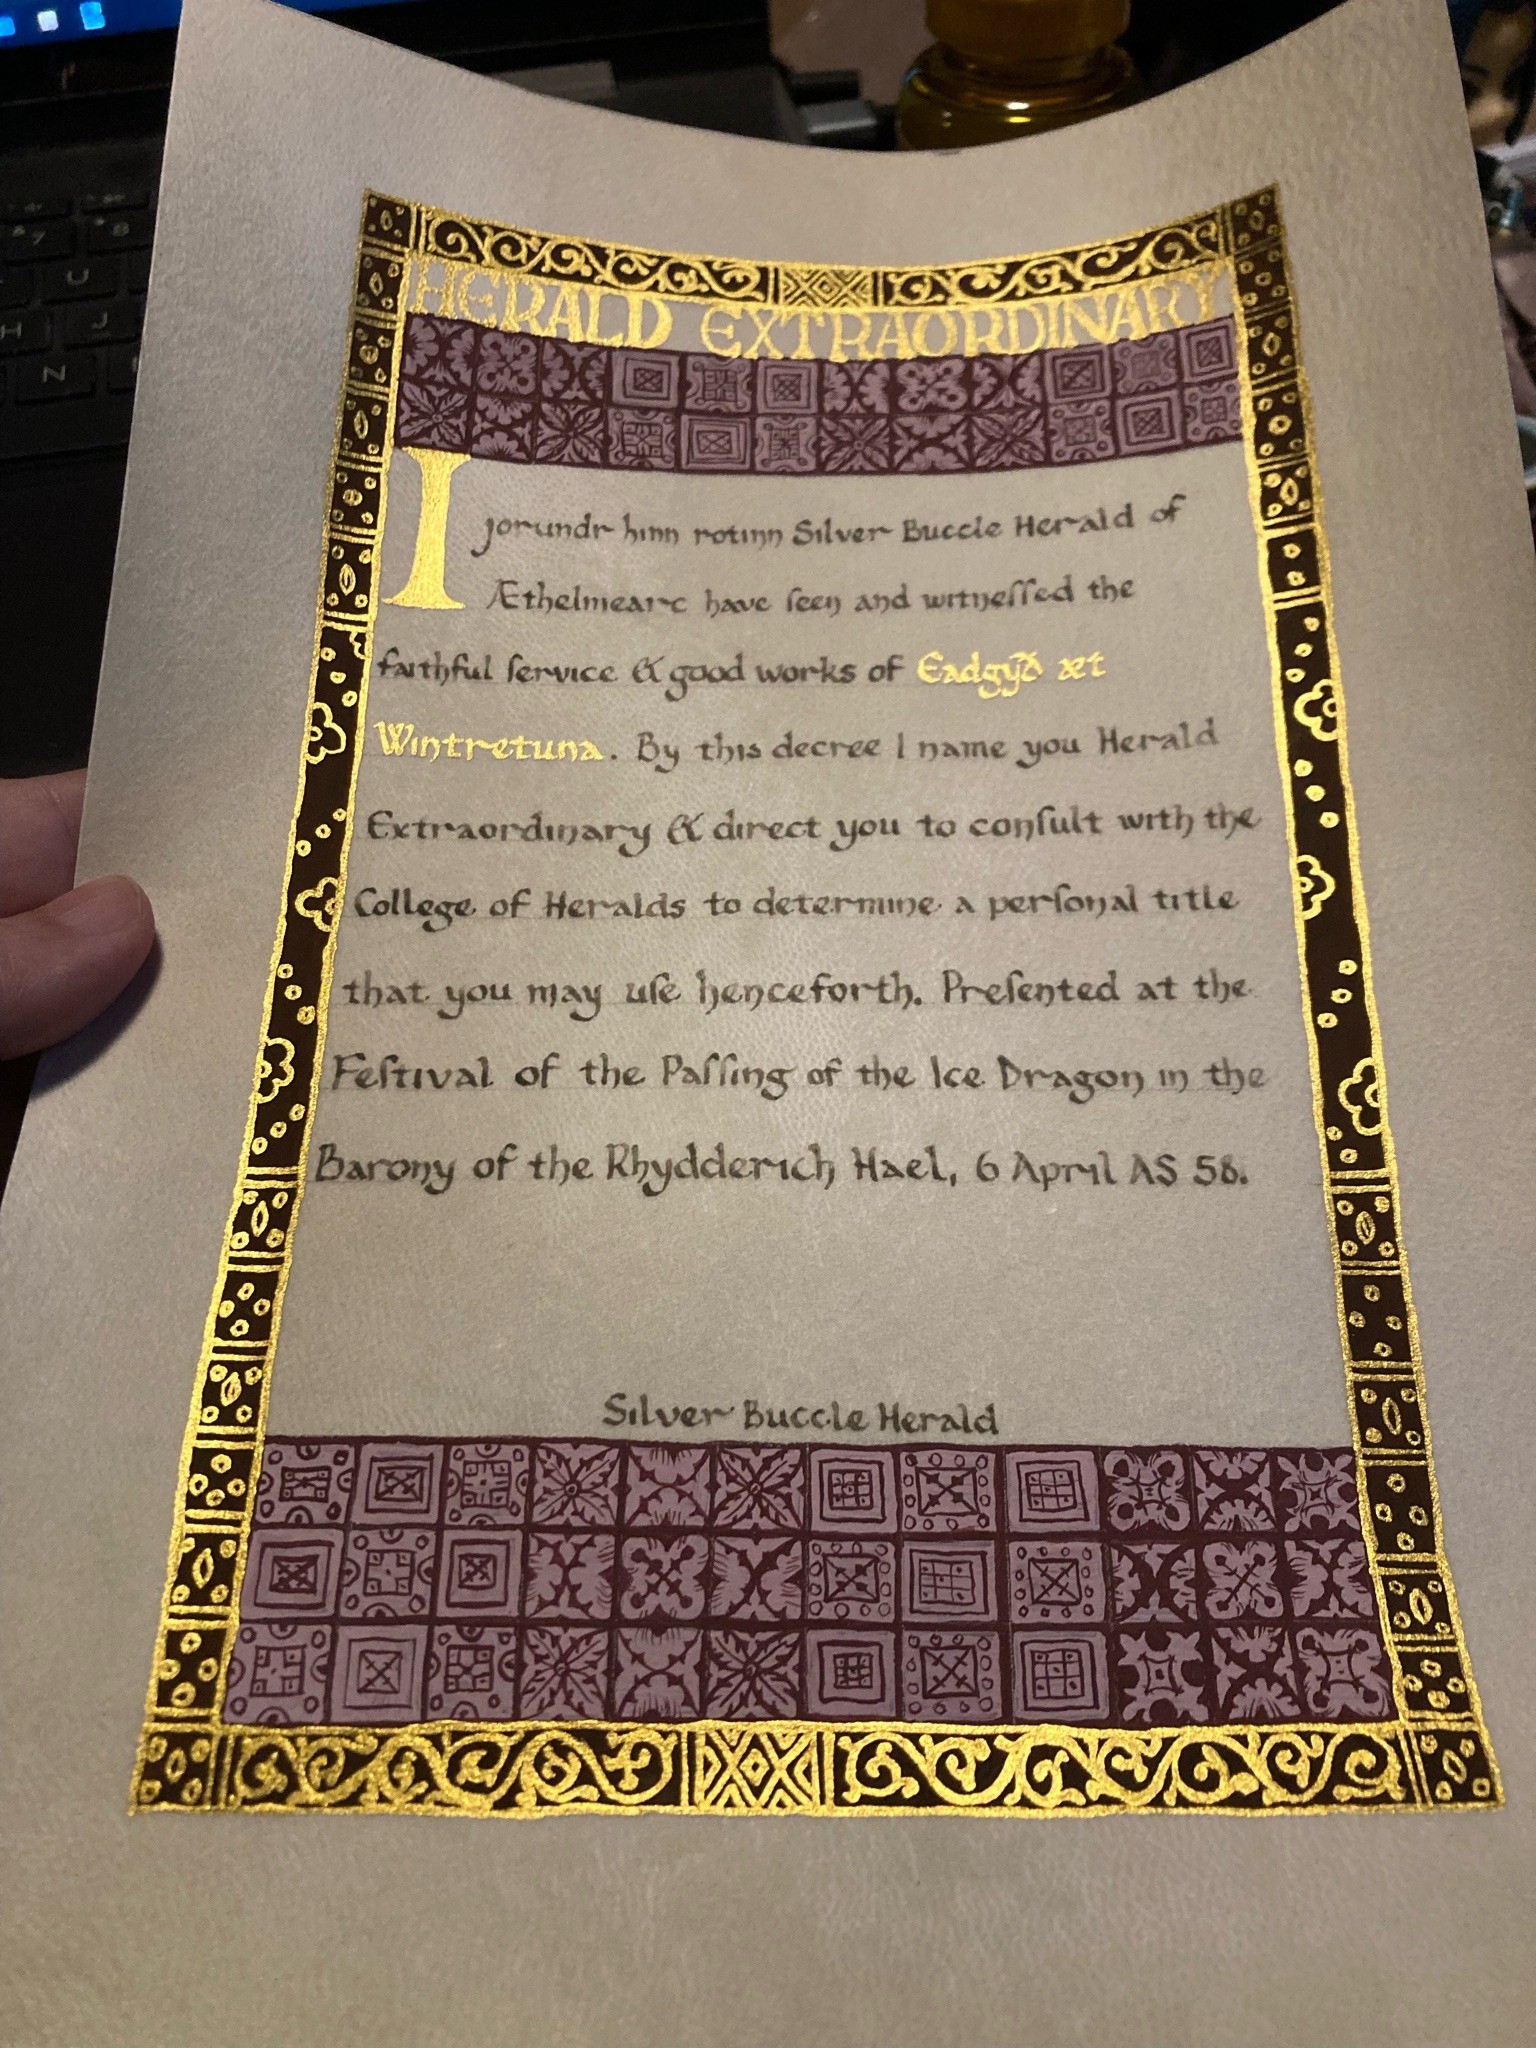 HERALD EXTRAORDINARY
I Jorundr hinn rotinn Silver Buccle Herald of
Æthelmearc have ſeen and witneſſed the
faithful ſervice & good works of Eadgyð æt
Wintretuna. By this decree I name you Herald
Extraordinary & direct you to conſult with the
College of Heralds to determine a perſonal title
that you may uſe henceforth. Preſented at the
Feſtival of the Paſſing of the Ice Dragon in the
Barony of the Rhydderich Hael, 6 April AS 58.
Silver Buccle Herald
7
8
U
H
J
N